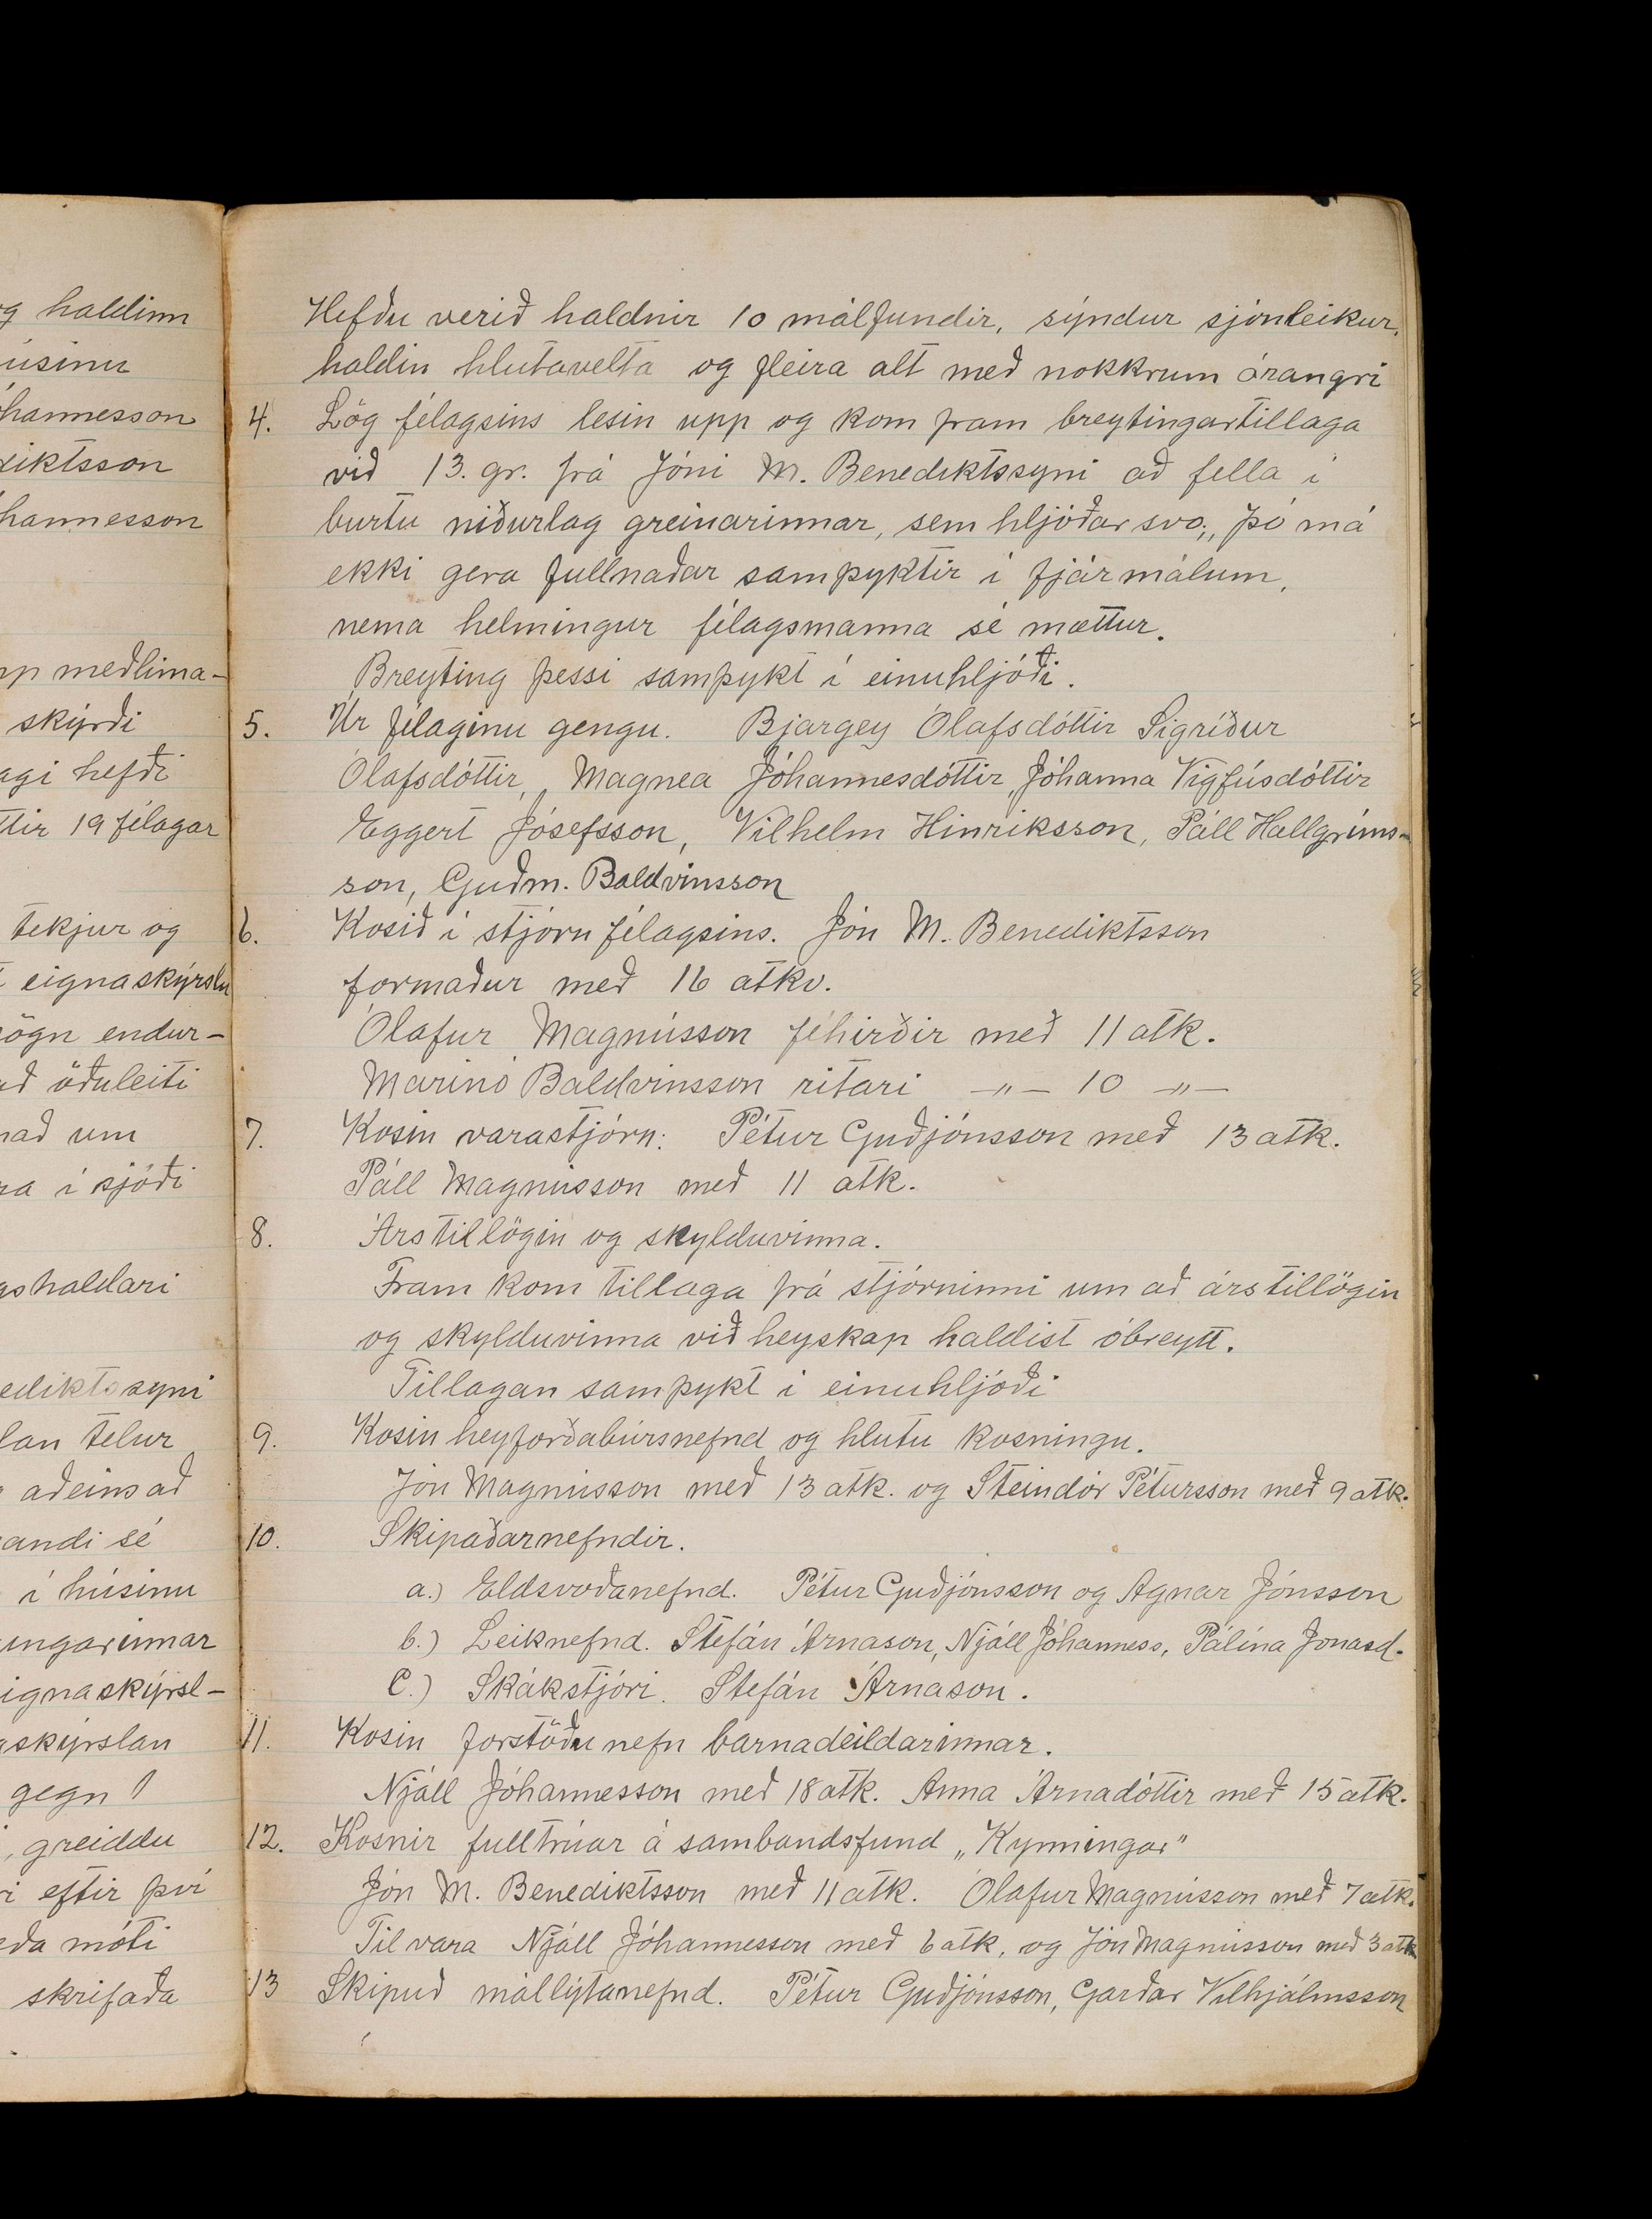 og haldinn
úsinu
óhannesson
diktsson
hannesson
pp meðlima-
skýrði
agi hefði
ttir 19 félagar
tekjur og
eignaskýrslu
sögn endur-
að öðuleiti
nað um
ra í sjóði
gshaldari
ediktssyni
lan telur
aðeins að
andi sé
í húsinu
ingarinnar
ignaskýrsl-
askýrslan
gegn 1
, greiddu
i eftir því
eða móti
skrifaða
Hefðu verið haldnir 10 málfundir, sýndur sjónleikur,
haldin hlutavelta og fleira alt með nokkrum árangri
4. Lög félagsins lesin upp og kom fram breytingartillaga
við 13. gr. frá Jóni M. Benediktssyni að fella í
burtu niðurlag greinarinnar, sem hljóðar svo; „ þó má
ekki gera fullnaðar samþyktir í fjármálum,
nema helmingur félagsmanna sé mættur.
Breyting þessi samþykt í einuhljóði.
5. Úr félaginu gengu. Bjargey Ólafsdóttir Sigríður
Ólafsdóttir, Magnea Jóhannesdóttir, Jóhanna Vigfúsdóttir
Eggert Jósefsson, Vilhelm Hinriksson, Páll Hallgríms-
son, Guðm. Baldvinsson
6. Kosið í stjórn félagsins. Jón M. Benediktsson
formaður með 16 atkv.
Ólafur Magnússon féhirðir með 11 atk.
Marinó Baldvinsson ritari -„- 10 -„-
7. Kosin varastjórn: Pétur Guðjónsson með 13 atk.
Páll Magnússon með 11 atk.
8. Árstillögin og skylduvinna.
Fram kom tillaga frá stjórninni um að árstillögin
og skylduvinna við heyskap haldist óbreytt.
Tillagan samþykt í einuhljóði
9. Kosin heyforðabúrsnefnd og hlutu kosningu.
Jón Magnússon með 13 atk. og Steindór Pétursson með 9 atk.
10. Skipaðarnefndir.
a.) Eldsvoðanefnd. Pétur Guðjónsson og Agnar Jónsson
b.) Leiknefnd. Stefán Árnason, Njáll Jóhanness, Pálína Jónasd.
C.) Skákstjóri. Stefán Árnason.
11. Kosin forstöðunefn barnadeildarinnar.
Njáll Jóhannesson með 18 atk. Anna Árnadóttir með 15 atk.
12. Kosnir fulltrúar á sambandsfund „Kynningar"
Jón M. Benediktsson með 11 atk. Ólafur Magnússon með 7 atk.
Til vara Njáll Jóhannesson með 6 atk, og Jón Magnússon með 3 atk
13 Skipuð mállýtanefnd. Pétur Guðjónsson, Garðar Vilhjálmsson